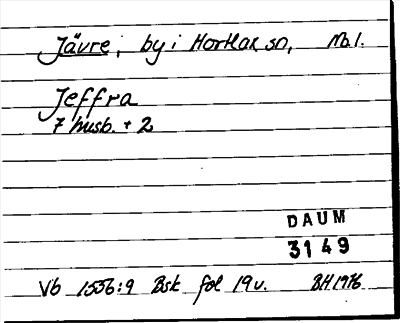 Jävre, by i Hortlax sn, Nb.l.
Jeffra
7 husb. + 2
DAUM
3149
Vb 1556:9 Bsk fol 19v. BH 1976